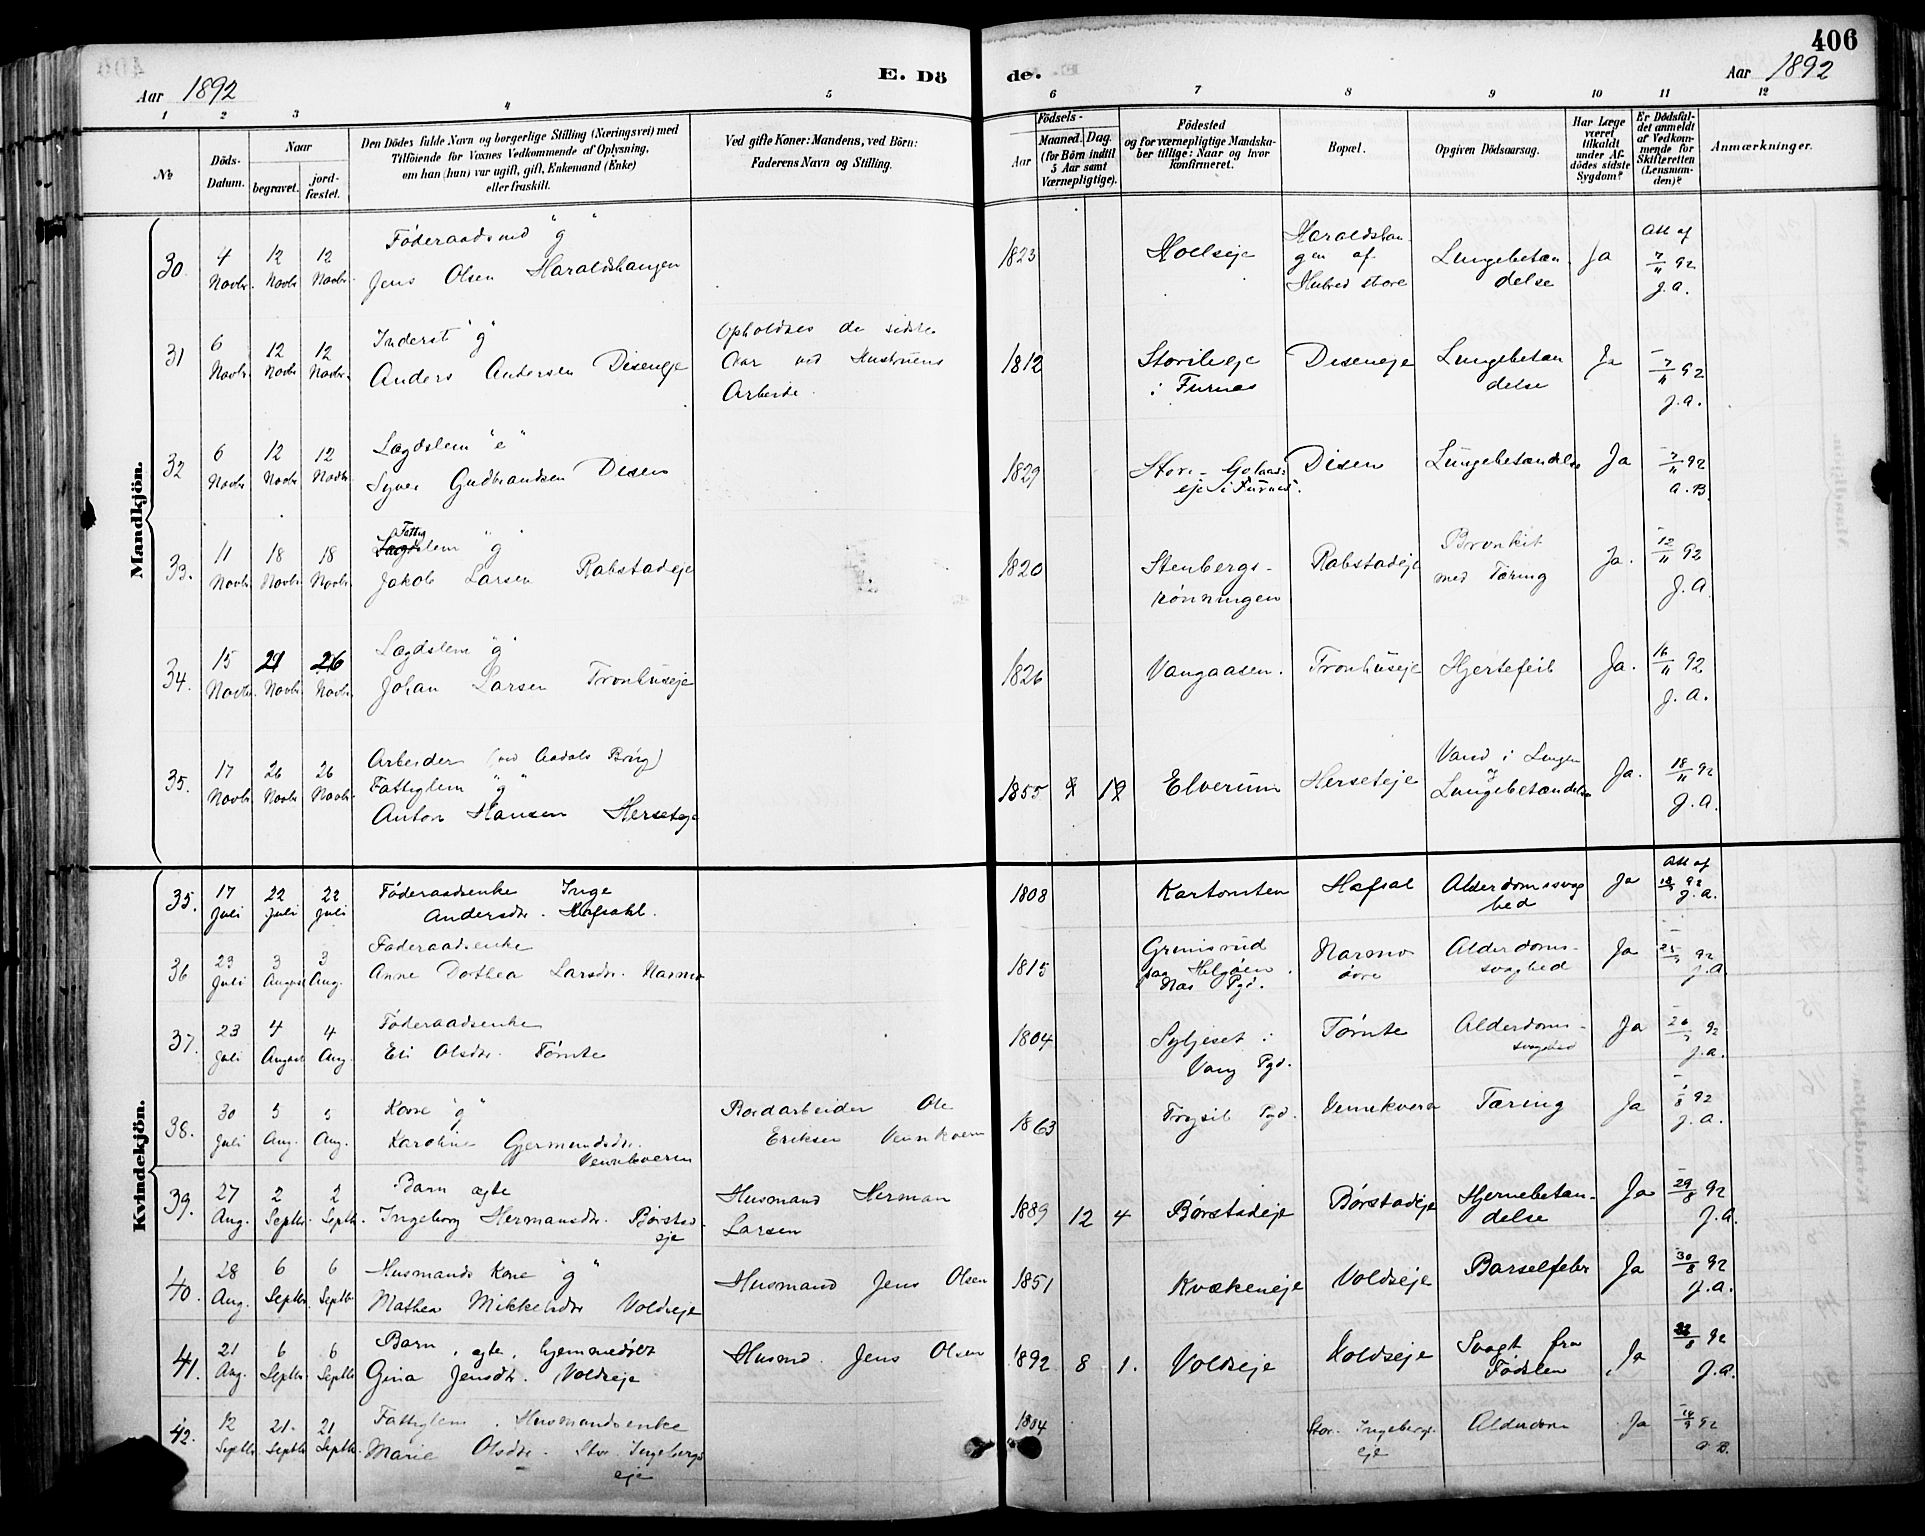 406
Aar 1892
E. Dö
de.
Aar 1892
1 2 3 4 5 6 7 8 9 10 11 12
№
Döds-
Datum.
Naar
begravet.
jord-
fæstet.
Den Dödes fulde Navn og borgerlige Stilling (Næringsvei) med
Tilföiende for Voxnes Vedkommende af Oplysning,
om han (hun) var ugift, gift, Enkemand (Enke)
eller fraskilt.
Ved gifte Koner: Mandens, ved Börn:
Faderens Navn og Stilling.
Födsels-
Aar
Maaned. Dag.
(for Börn indtil
5 Aar samt
Værnepligtige).
Födested
og for værnepligtige Mandska-
ber tillige: Naar og hvor
konfirmeret.
Bopæl.
Opgiven Dödsaarsag.
Har Læge
været
tilkaldt
under Af-
dödes sidste
Sygdom?
Er Dödsfal-
det anmeldt
af Vedkom-
mende for
Skifteretten
(Lensman-
den)?
Anmærkninger.
Mandkjön.
30. 4 Novbr. 12 Novbr. 12 Novbr.
Föderaadsmd "g"
Jens Olsen Haraldshaugen
1823
Haraldshau-
gen af
Hubred store
Lungebetæn
delse
Ja
Att af
7/11 92
J. A.
31 6 Novbr. 12 Novbr. 12 Novbr.
Inderst "g"
Anders Andersen Diseneje
Opholdtes de sidste
Aar ved Hustruens
Arbeide.
1812
i Furnes
Diseneje
Lungebetæn
delse
Ja
7/11 92
J. A.
32 6 Novbr 12 Novbr 12 Novbr.
Lægdslem "e"
Syver Gudbrandsen Disen
1829
eje i Furnes.
Disen
Lungebetændelse
Ja
7/11 92
A. B.
33. 11 Novbr. 18 Novbr. 18 Novbr.
Fattig
Lægdslem "g"
Jakob Larsen Rabstadeje
1820
Stenbergs-
rönningen
Rabstadeje
Bronkit
med Tæring
Ja.
12/11 92
J. A.
34. 15 Novbr. 21 Novbr. 26 Novbr.
Lægdslem "g"
Johan Larsen Tronhuseje
1826
Vangaasen.
Tronhuseje
Hjertefeil
Ja.
16/11 92
J. A.
35. 17 Novbr. 26 Novbr. 26 Novbr.
Arbeider (ved Aadals Brug)
Fattiglem "g"
Anton Hansen Herseteje
1855
Elverum
Herseteje
Vand i Lungen
og
Lungebetændelse
Ja.
18/11 92
J. A.
Kvindekjön.
35. 17 Juli 22 Juli 22 Juli
Föderaadsenke Inge
Andersdr. Hafsahl.
1808
Kartomten
Hafsal
Alderdomssvag
hed
Ja
Att af
18/7 92
J. A.
36 23 Juli 3 August 3 Aug.
Föderaadsenke
Anne Dorthea Larsdr. Narmo
1815
Grimsrud
paa Helgöen.
Næs Pgd.
Narmo
övre
Alderdoms-
svaghed
Ja
25/7 92
J. A.
37. 23 Juli 4 August 4 Aug.
Föderaadsenke
Eli Olsdr. Törnte
1804
Syljeset i
Vang Pgd.
Törnte
Alderdoms-
svaghed
Ja
26/7 92
J. A.
38. 30 Juli 5 Aug. 5 Aug.
Kone "g"
Karoline Gjermundsdr.
Vennkvern
Bordarbeider Ole
Eriksen Vennkvern
1863
Trysil Pgd.
Vennkvern
Tæring
Ja
1/8 92
J. A.
39. 27 Aug. 2 Septbr. 2 Septbr.
Barn ægte
Ingeborg Hermansdr. Börstad-
eje
Husmand Herman
Larsen
1889 12 4
Börstadeje
Börstadeje
Hjernebetæn-
delse
Ja
29/8 92
J. A.
40. 28 Aug. 6 Septbr. 6 Septbr
Husmands Kone "g"
Mathea Mikkelsdr Voldseje
Husmand Jens Olsen
1851
Kvækeneje
Voldseje
Barselfeber
Ja
30/8 92
J. A.
41. 21 Aug. 6 Septbr. 6 Septbr
Barn, ægte, hjemmedöbt
Gina Jensdr. Voldseje
Husmd. Jens Olsen
1892 8 1.
Voldseje
Voldseje
Svagt fra
Födslen
Ja
92
J. A.
42. 12 Septbr. 21 Septbr. 21 Septbr.
Fattiglem. Husmandsenke
Marie Olsdr. Stor-Ingebergs
eje
1804
Stor-Ingebergs-
eje
Alderdom
Ja
14/9 92
A. B.